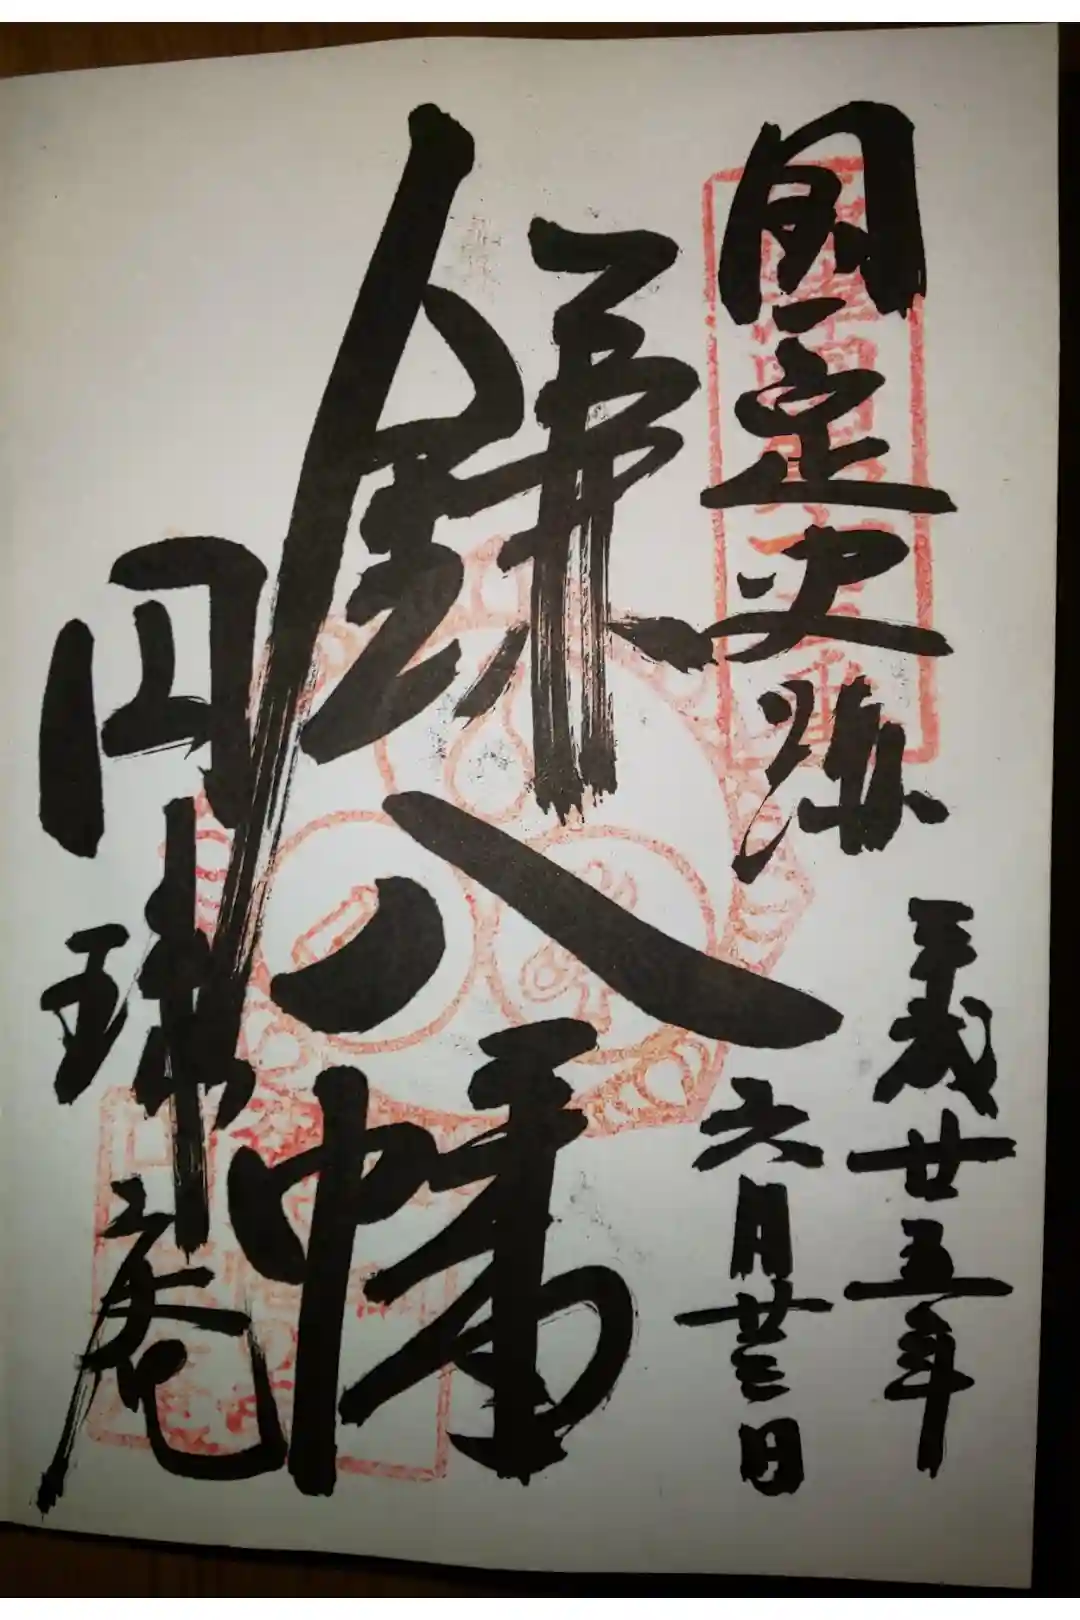 国定史跡
平成廿五年
六月廿三日
鎌八幡
円珠庵